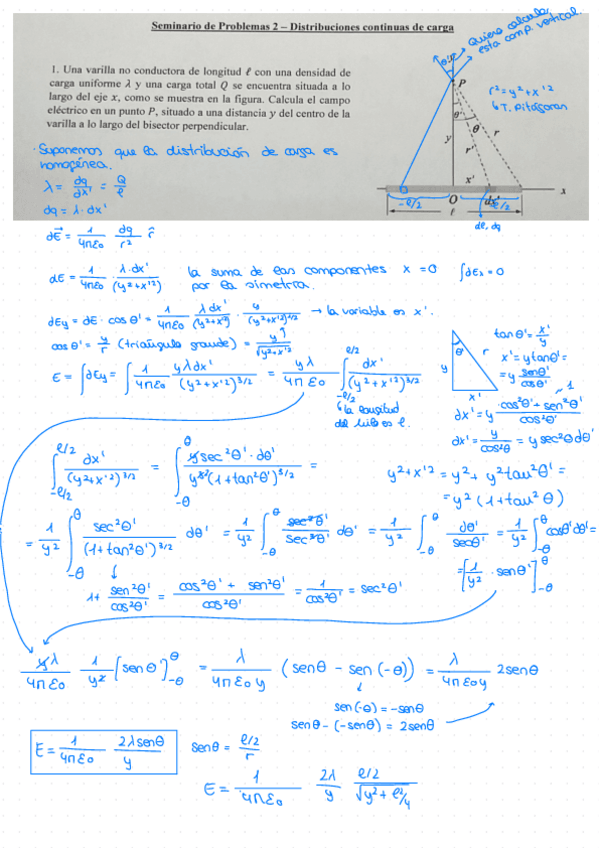 Seminario de Problemas 2 – Distribuciones continuas de carga
1. Una varilla no conductora de longitud ℓ con una densidad de
carga uniforme λ y una carga total Q se encuentra situada a lo
largo del eje x, como se muestra en la figura. Calcula el campo
eléctrico en un punto P, situado a una distancia y del centro de la
varilla a lo largo del bisector perpendicular.
Quiero calcular
esta comp. vertical.
θ'
P
r² = y² + x'²
↳ T. Pitágoras
θ' θ r
y r'
x'
-ℓ/2 O dx' ℓ/2 x
ℓ
dℓ, dq
· Suponemos que la distribución de carga es
homogénea.
λ = dq/dx' = Q/ℓ
dq = λ · dx'
dE⃗ = 1/4πε₀ dq/r² r̂
dE = 1/4πε₀ · λ·dx'/(y²+x'²) la suma de las componentes x = 0 ∫dEx = 0
por la simetría.
dEy = dE · cos θ' = 1/4πε₀ λdx'/(y²+x'²) · y/(y²+x'²)^1/2 → la variable es x'.
cos θ' = y/r (triángulo grande) = y/√(y²+x'²)
E = ∫dEy = ∫ 1/4πε₀ yλdx'/(y²+x'²)^3/2 = yλ/4πε₀ ∫_{-ℓ/2}^{ℓ/2} dx'/(y²+x'²)^3/2
↳ la longitud
del hilo es ℓ.
θ' y r x'
tan θ' = x'/y
x' = y tan θ' =
= y sen θ'/cos θ'
dx' = y cos²θ' + sen²θ'/cos²θ' 1
dx' = y/cos²θ = y sec²θ dθ'
∫_{-ℓ/2}^{ℓ/2} dx'/(y²+x'²)^3/2 = ∫_{-θ}^{θ} y sec²θ' · dθ'/y³(1+tan²θ')^3/2 =
y² + x'² = y² + y² tan²θ' =
= y² (1 + tan²θ)
= 1/y² ∫_{-θ}^{θ} sec²θ'/(1+tan²θ')^3/2 dθ' = 1/y² ∫_{-θ}^{θ} sec²θ'/sec³θ' dθ' = 1/y² ∫_{-θ}^{θ} dθ'/secθ' = 1/y² ∫_{-θ}^{θ} cosθ' dθ' =
= [1/y² · sen θ']_{-θ}^{θ}
1 + sen²θ'/cos²θ' = cos²θ' + sen²θ'/cos²θ' = 1/cos²θ' = sec²θ'
yλ/4πε₀ 1/y² [sen θ]_{-θ}^{θ} = λ/4πε₀y (sen θ - sen (-θ)) = λ/4πε₀y 2senθ
sen(-θ) = -senθ
senθ - (-senθ) = 2senθ
E = 1/4πε₀ 2λsenθ/y
senθ = ℓ/2/r
E = 1/4πε₀ 2λ/y ℓ/2/√(y² + ℓ²/4)